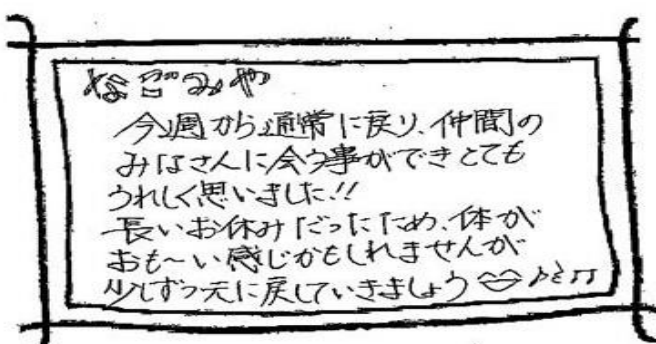 なごみや
今週から通常に戻り、仲間の
みなさんに会う事ができとても
うれしく思いました!!
長いお休みだったため、体が
おも～い感じかもしれませんが
少しずつ元に戻していきましょう